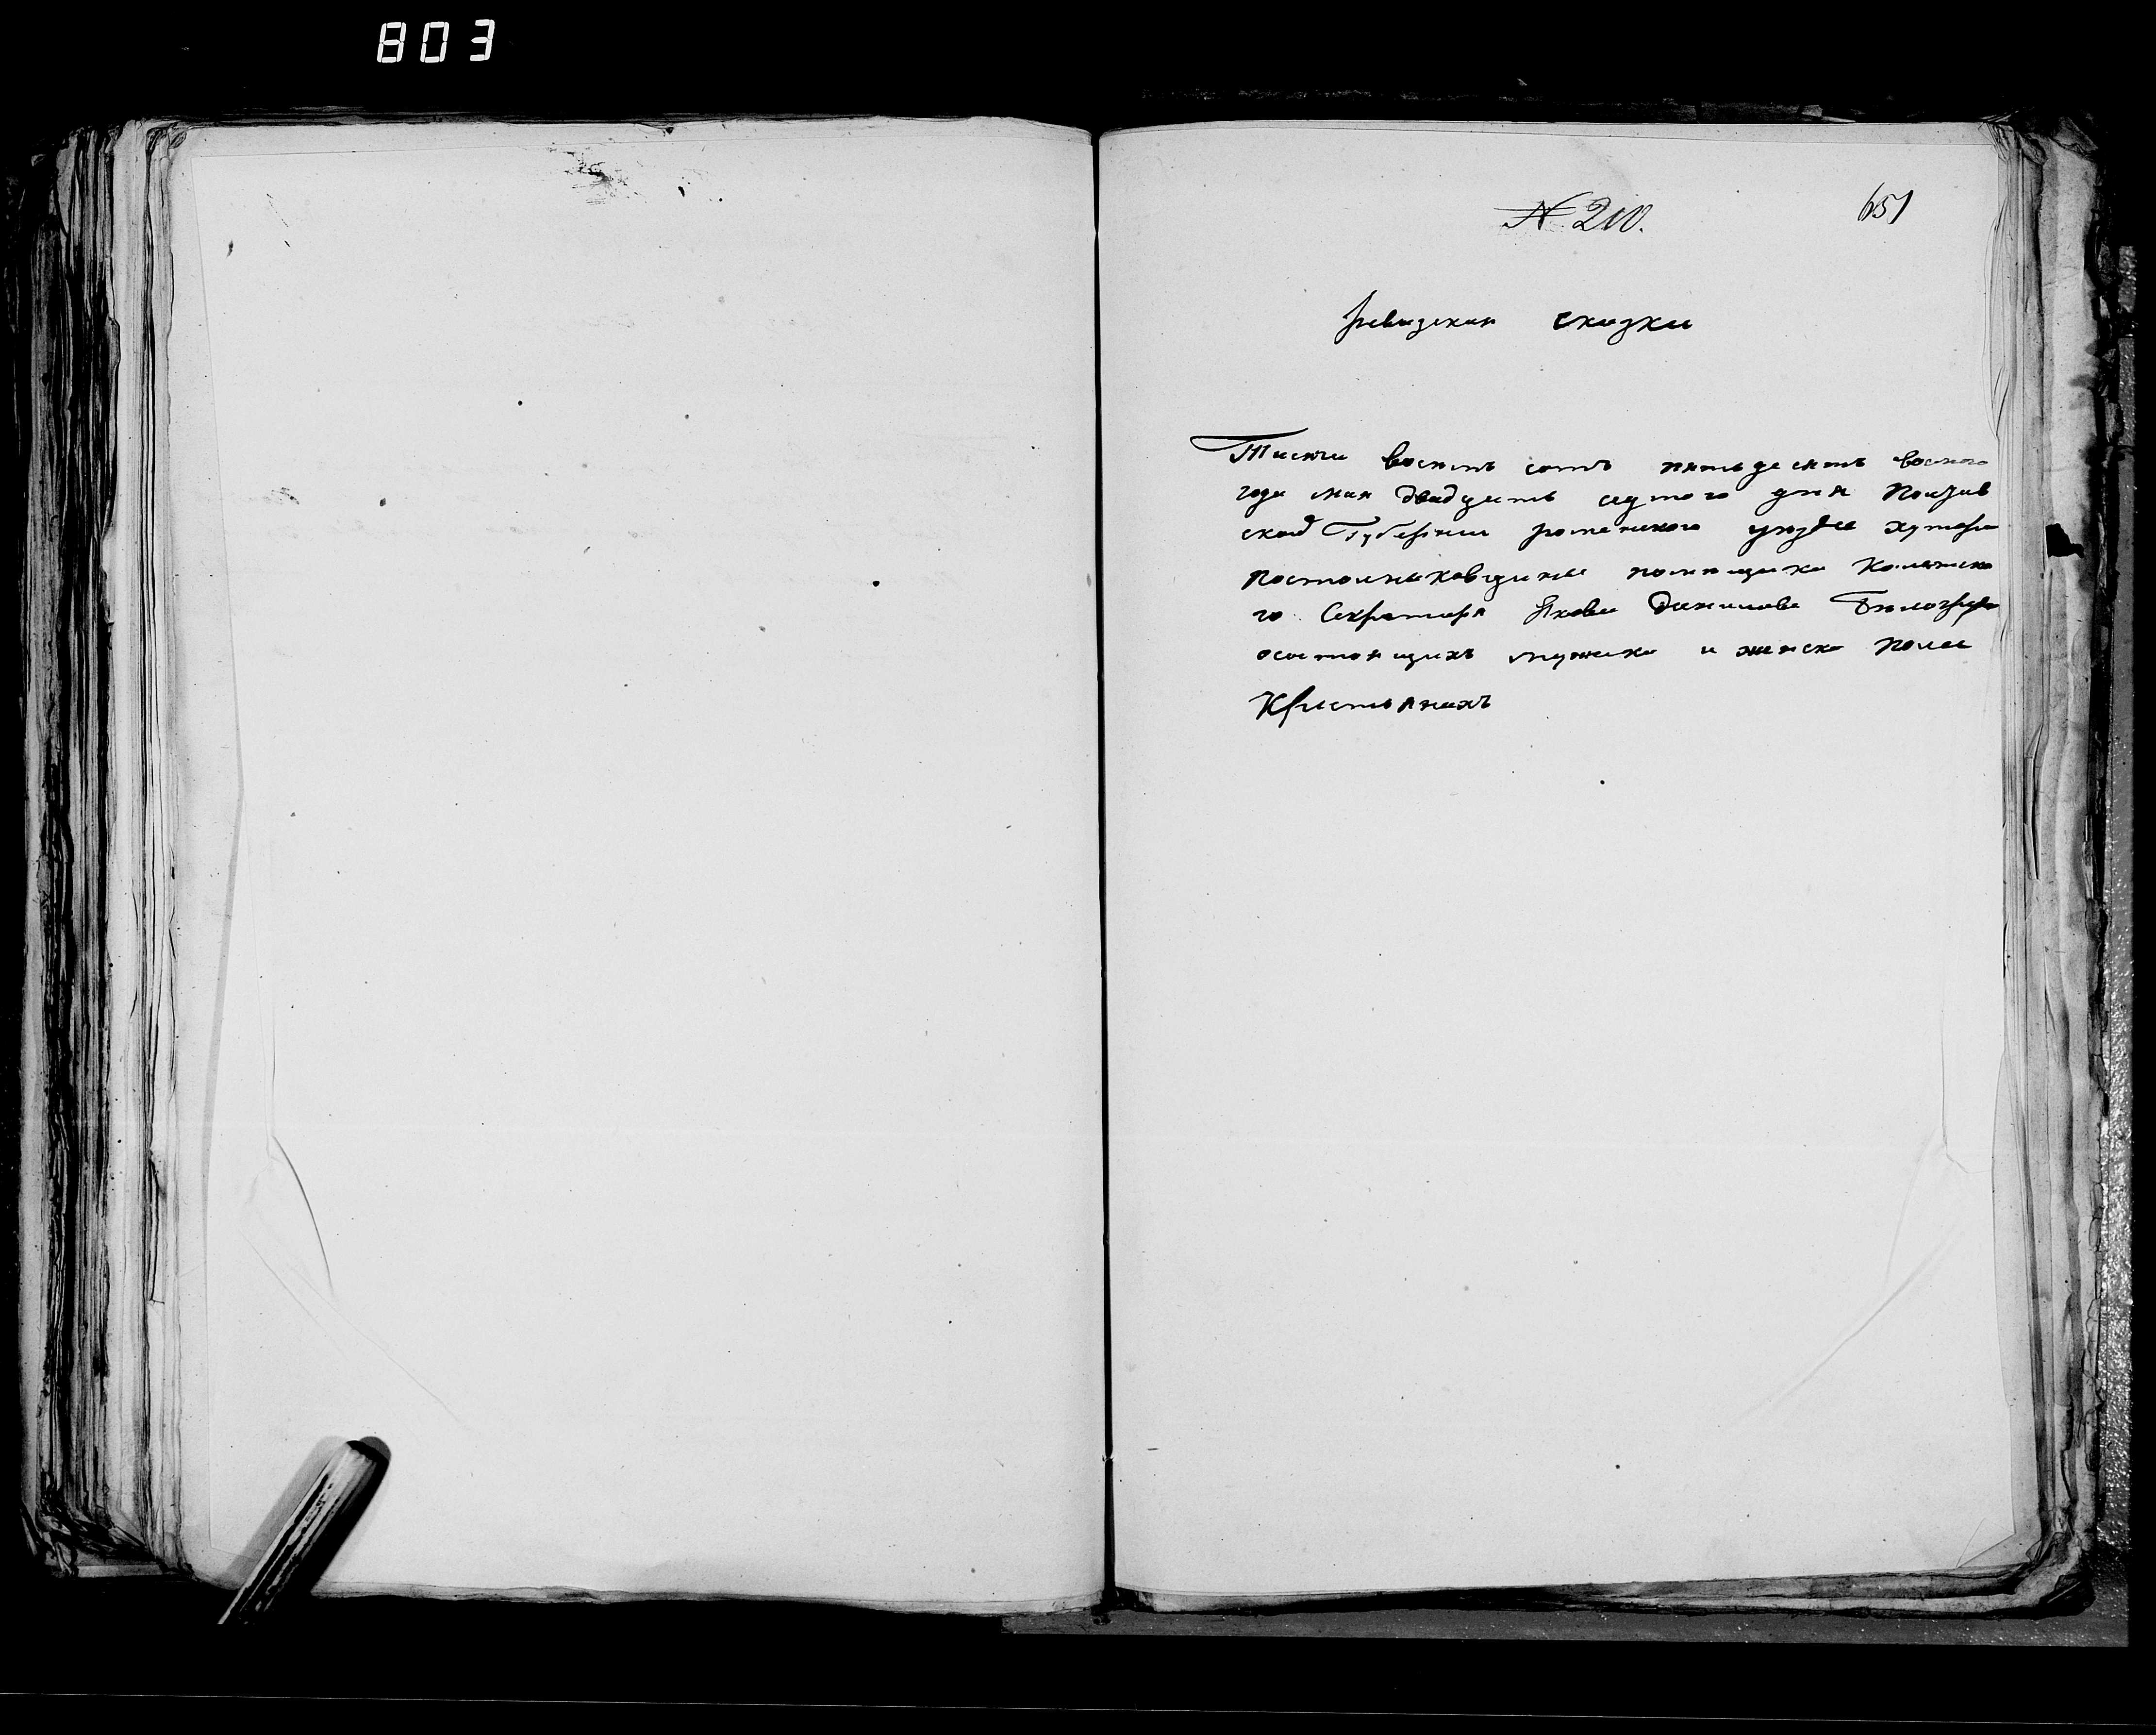 803
№ 210.
651
ревизская сказка
Тисячи восемь сотъ пятьдесятъ восмого
года мая двадцять седмого дня Полтав
ской Губернии роменского уезда хутора
постольныковщины помещика Колежско
го Секретаря Якова Данилова
осостоящихъ мужеска и женска пола
Крестьянахъ